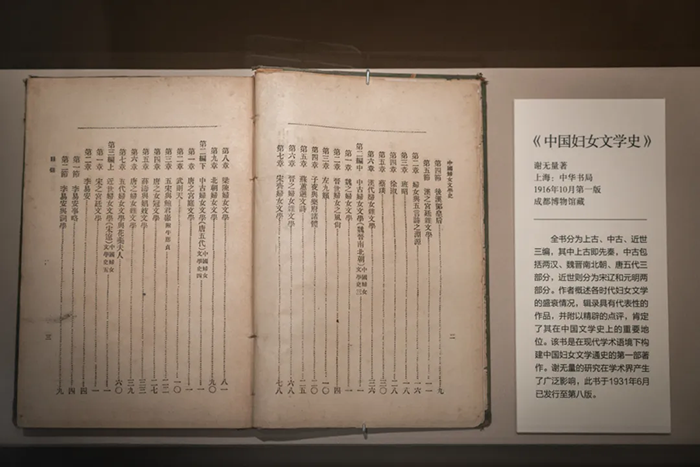 中國婦女文學史
二
第四節
第五節
第二章 婦女與五言詩之淵源
第三章 班昭
第四章 徐淑
第五章 蔡琰
第六章 漢代婦女雜文學
第二編中 中古婦女文學(魏晉南北朝) 中國婦女文學史三
第一章 魏之婦女文學
第二章 晉世婦女之風尚
第三章 左九嬪
第四章 子夜與樂府諸體
第五章 蘇蕙迴文詩
第六章 晉之婦女雜文學
第七章 宋齊婦女文學 七八
第八章 梁陳婦女文學 八一
第九章 北朝婦女文學 九〇
第二編下 中古婦女文學(唐五代) 中國婦女文學史四
第一章 唐之宮廷文學 一
第二章 武則天 一〇
第三章 五宋與鮑君徽 附牛應貞
第四章 唐之女冠文學
第五章 薛濤與娼妓文學
第六章 唐之婦女雜文學
第七章 五代婦女文學與花蕊夫人 六〇
第三編上 近世婦女文學(宋遼) 中國婦女文學史五
第一章 宋之宮廷文學
第二章 李易安
第一節 李易安事略 四
第二節 李易安與詞學 九
目錄
三
《中国妇女文学史》
谢无量著
上海:中华书局
1916年10月第一版
成都博物馆藏
全书分为上古、中古、近世
三编,其中上古即先秦,中古包
括两汉、魏晋南北朝、唐五代三
部分,近世则分为宋辽和元明两
部分。作者概述各时代妇女文学
的盛衰情况,辑录具有代表性的
作品,并附以精辟的点评,肯定
了其在中国文学史上的重要地
位。该书是在现代学术语境下构
建中国妇女文学通史的第一部著
作。谢无量的研究在学术界产生
了广泛影响,此书于1931年6月
已发行至第八版。